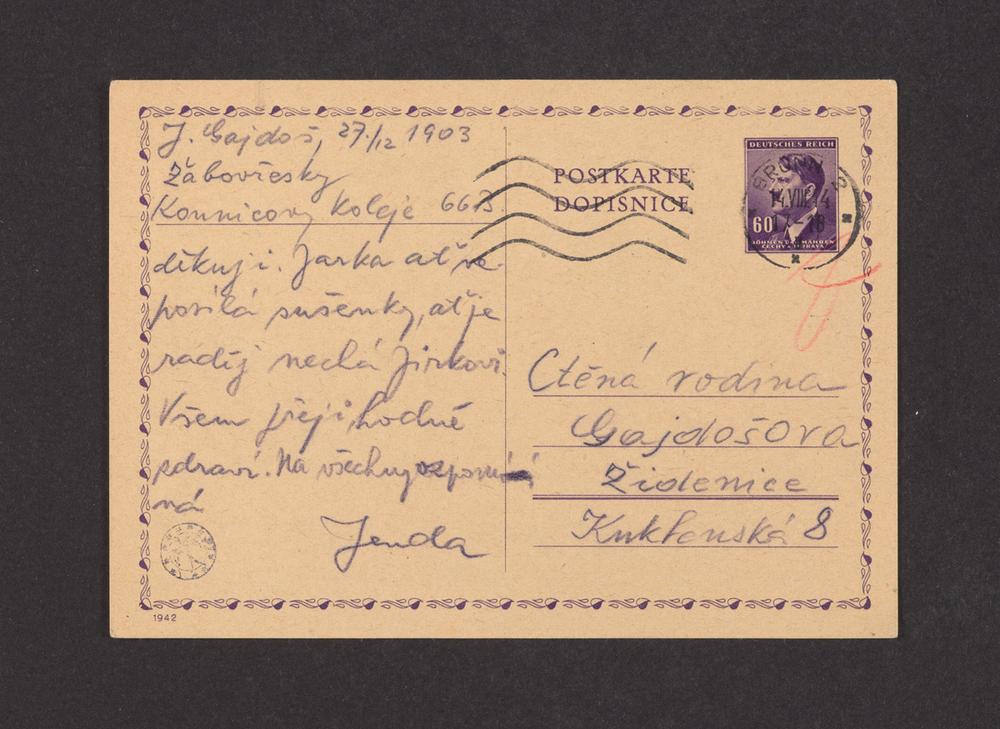 J. Gajdoš, 27./12 1903
Žabovřesky
Kounicovy koleje 66B.
děkuji. Jarka ať ne-
posílá sušenky, ať je
raděj nechá Jirkovi.
Všem přeji hodně
zdraví. Na všechny vzpomí
ná
Jenda
1942
POSTKARTE
DOPISNICE
DEUTSCHES REICH
60
BÖHMEN U. MÄHREN
ČECHY A MORAVA
BRÜNN 2
14.VIII.44
17-18
Ctěná rodina
Gajdošova
Židenice
Kuklenská 8